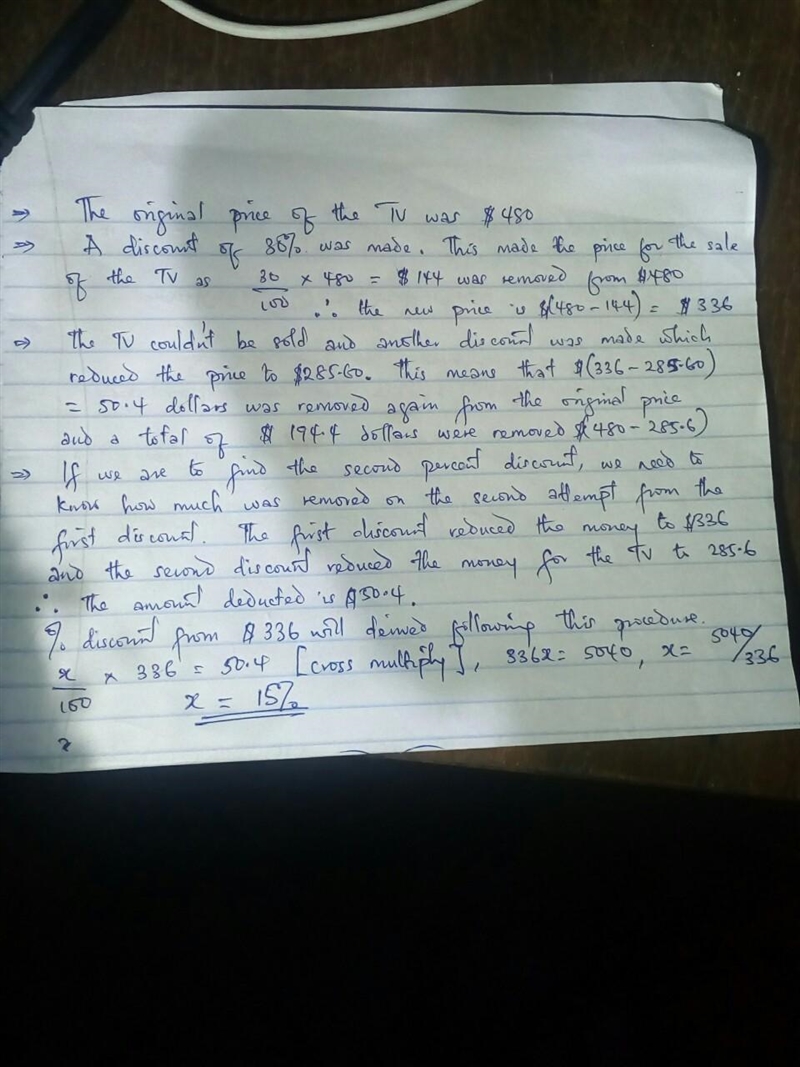 ⇒ The original price of the TV was $480
⇒ A discount of 30% was made. This made the price for the sale
of the TV as 30/100 × 480 = $144 was removed from $480
∴ the new price is $(480-144) = $336
⇒ The TV couldn't be sold and another discount was made which
reduced the price to $285.60. This means that $(336-285.60)
= 50.4 dollars was removed again from the original price
and a total of $ 194.4 dollars were removed $(480-285.6)
⇒ If we are to find the second percent discount, we need to
know how much was removed on the second attempt from the
first discount. The first discount reduced the money to $336
and the second discount reduced the money for the TV to 285.6
∴ The amount deducted is $50.4.
% discount from $336 will derived following this procedure.
x/100 × 336 = 50.4 [cross multiply], 336x = 5040, x = 5040/336
x = 15%